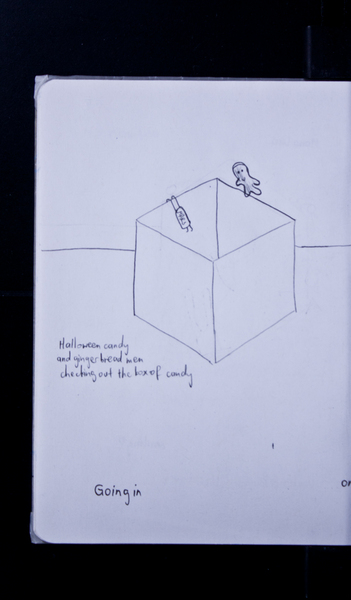 Halloween candy
and gingerbread men
checking out the box of candy
Going in